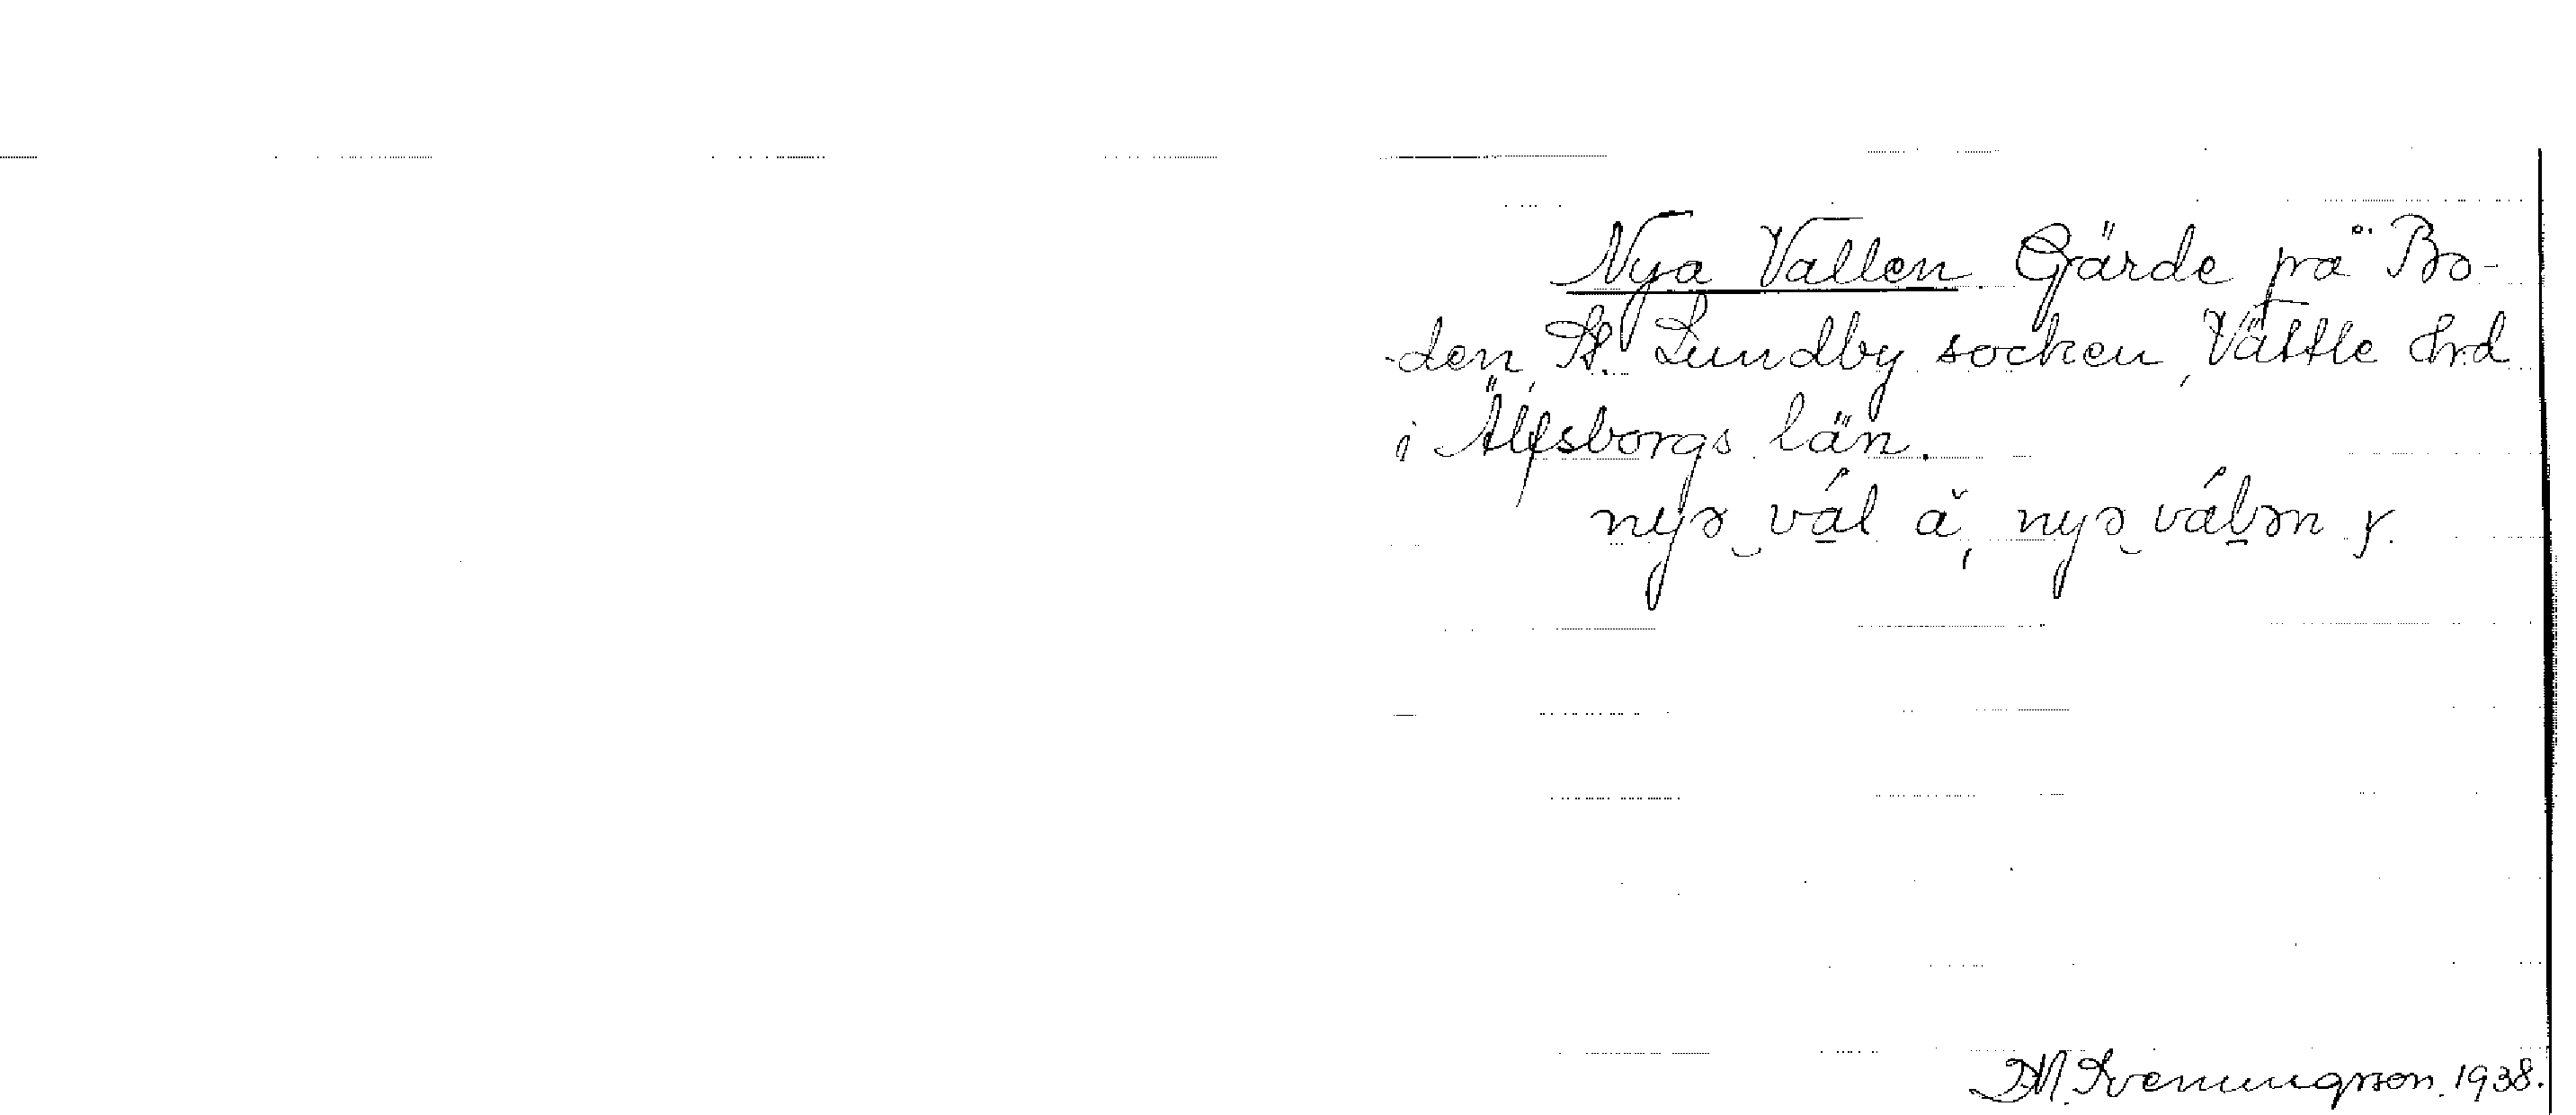 Nya Vallen Gärde på Bo-
-den, St. Lundby socken, Vättle hrd
i Älfsborgs län.
nyə vál ǎ, nyə válən y.
M. Svenungsson 1938.